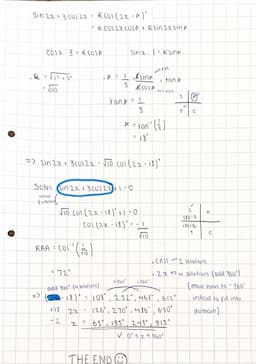 sin2x + 3cos2x = Rcos(2x - A)°
= Rcos2xcosA + Rsin2xsinA
cosx : 3 = RcosA   sinx : 1 = RsinA
∴ R = √1² + 3²
= √10
∴ A = 1/3 RsinA/RcosA = tanA
tanA = 1/3
A = tan⁻¹(1/3)
= 18°
=> sin2x + 3cos2x = √10 cos(2x - 18)°
Solve sin2x + 3cos2x + 1 = 0
√10 cos(2x - 18)° + 1 = 0
cos(2x - 18)° = -1/√10
RAA = cos⁻¹(1/√10)
= 72°
• CAST → 2 solutions
• 2x => 4 solutions (add 360°)
add 360° (4 solutions) +360° +360°
=> (2x - 18)° = 108°, 252°, 468°, 612°
+18   2x = 126°, 270°, 486°, 630°
÷2   x = 63°, 135°, 243°, 315°
✓ 0° ≤ x ≤ 360°
THE END ☺